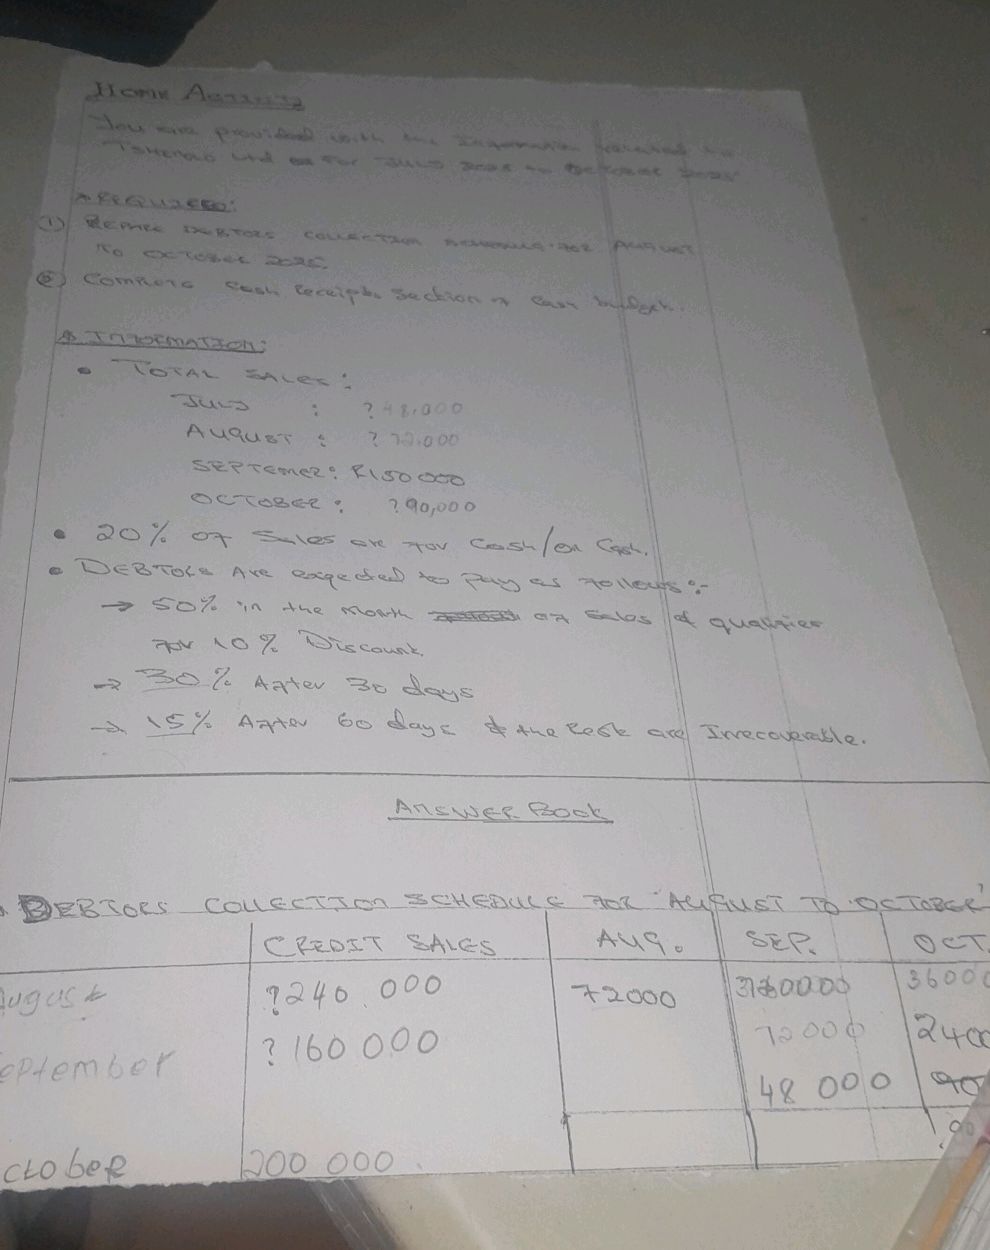 HOME ACTIVITY
You are provided with the Information related to
TSHEPANG Ltd for JULY 2025 to OCTOBER 2025
REQUIRED:
① DEBTORS COLLECTION SCHEDULE FOR AUGUST
TO OCTOBER 2025.
② Complete cash receipts section of cash budget.
INFORMATION:
• TOTAL SALES:
JULY : ? 48,000
AUGUST : ? 72.000
SEPTEMER: R150 000
OCTOBER: ? 90,000
• 20% OF Sales are FOR Cash/on Cash.
• DEBTORS Are expected to pay as follows:-
→ 50% in the month of sales & qualifies
for 10% Discount
→ 30% After 30 days
→ 15% After 60 days & the Rest are Irrecoverable.
ANSWER BOOK
DEBTORS COLLECTION SCHEDULE FOR AUGUST TO OCTOBER
CREDIT SALES AUG. SEP. OCT.
August ? 240.000 72000 36000
eptember ? 160 000 72000 2400
48 000 90
ctober 200 000.